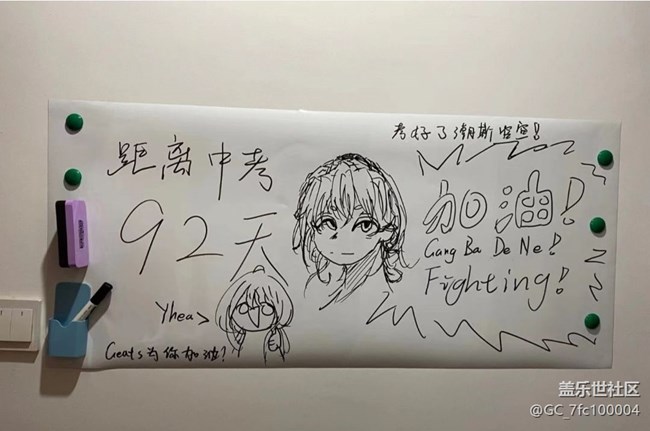 考好了潮斯空空!
距离中考
92天
加油!
Gang Ba De Ne!
Fighting!
Yhea>
Geats为你加油?
盖乐世社区
@GC_7fc100004